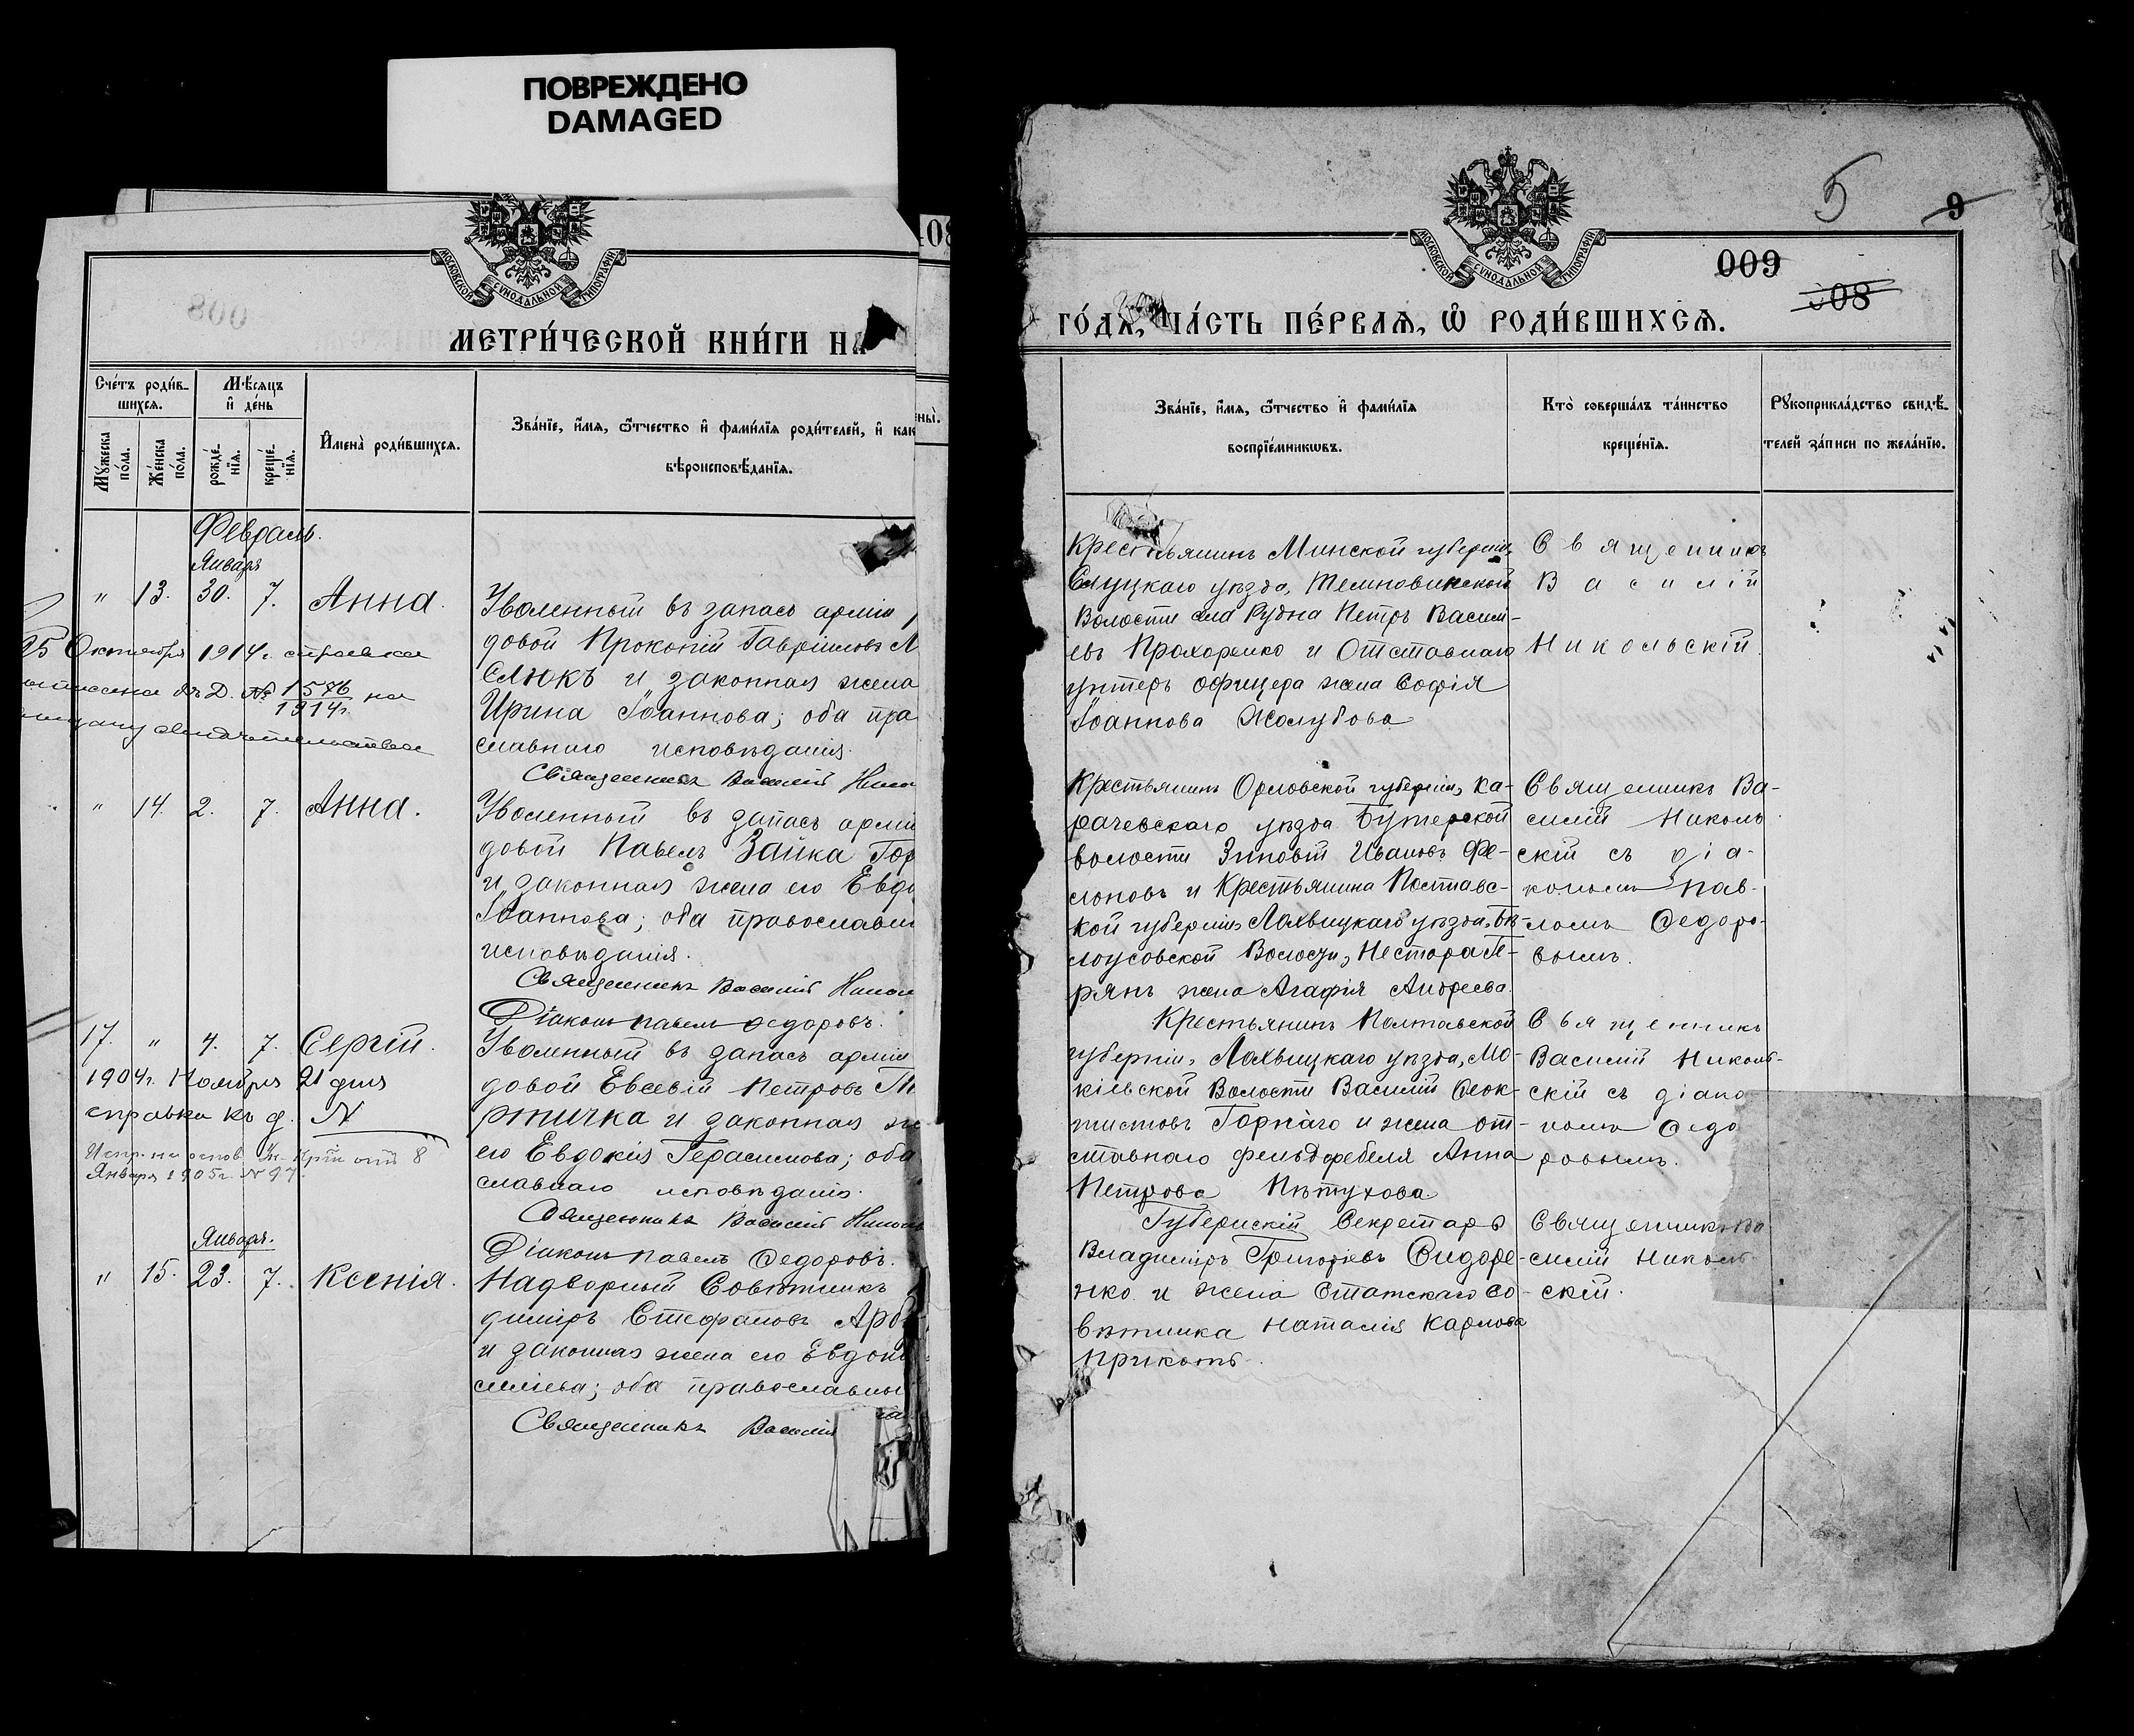 ПОВРЕЖДЕНО
DAMAGED
МОСКОВСКОЙ СѴНОДАЛЬНОЙ ТИПОГРАФІИ
800
МЕТРИ́ЧЕСКОЙ КНИ́ГИ НА
Сче́тъ роди́в-
шихсѧ.
Мꙋ́жеска по́ла.
Же́нска по́ла.
М҄ѣсѧцъ
и҆ де́нь
рожде́-
нїѧ.
креще́-
нїѧ.
И҆мена̀ роди́вшихсѧ.
Зва́нїе, и҆́мѧ, ѻ҆́тчество и҆ фами́лїѧ роди́телей, и҆ как
вѣроисповѣ́данїѧ.
Февраль.
Января
" 13. 30. 7. Анна.
Уволенный въ запасъ арміи
довой Прокопій Гавріиловъ М
слюкъ и законная жена
Ирина Іоаннова; оба пра
славнаго исповѣданія.
Священникъ Василій Никол
25 Октября 1914 г. справка
къ Д. № 1576 на
1914 г.
выдачу свидетельства
" 14. 2. 7. Анна.
Уволенный въ запасъ арміи
довой Павелъ Зайка Гор
и законная жена его Евдо
Іоаннова; оба православн
исповѣданія.
Священникъ Василій Никол
Діаконъ Павелъ Ѳедоровъ.
17. " 4. 7. Сергій.
Уволенный въ запасъ арміи
довой Евсевій Петровъ
ртичка и законная же
его Евдокія Герасимова; оба
славнаго исповѣданія.
Священникъ Василій Николь
Діаконъ Павелъ Ѳедоровъ.
1904 г. Ноября 21 дня
справка къ д. N
Января 1905 г. N 97.
Января.
" 15. 23. 7. Ксенія.
Надворный Совѣтникъ
диміръ Стефановъ Арб
и законная жена его Евдок
силіева; оба православны
Священникъ Василій
5
9
МОСКОВСКОЙ СѴНОДАЛЬНОЙ ТИПОГРАФІИ
009
308
ГО́ДА, ЧА́СТЬ ПЕ́РВАѦ, Ѽ РОДИ́ВШИХСѦ.
Зва́нїе, и҆́мѧ, ѻ҆́тчество и҆ фами́лїѧ
воспрїе́мникѡвъ.
Кто̀ соверша́лъ та́инство
креще́нїѧ.
Рꙋкоприкла́дство свидѣ́-
телей за́писи по жела́нїю.
Крестьянинъ Минской губерніи,
Слуцкаго уѣзда, Темновинской
Волости села Рудна Петръ Васил-
евъ Прохоренко и Отставнаго
унтеръ офицера жена Софія
Іоаннова Жолубова
Священникъ
Василій
Никольскій.
Крестьянинъ Орловской губерніи, Ка-
рачевскаго уѣзда Бутерской
волости Зиновій Ивановъ Фе-
слоновъ и Крестьянина Полтавс-
кой губерніи, Лохвицкаго уѣзда, Бѣ-
лоусовской Волости, Нестора
жена Агафія Андреева.
Священникъ Ва-
силій Николь
скій съ діа-
кономъ Пав-
ломъ Ѳедоро-
вымъ.
Крестьянинъ Полтавской
губерніи, Лохвицкаго уѣзда, Мо-
кіевской Волости Василій Ѳеок-
тистовъ Горкаго и жена от-
ставнаго фельдфебеля Анна
Петрова Пѣтухова
Священникъ
Василій Николь-
скій съ діако
номъ Ѳедо
ровымъ.
Губернскій Секретарь
Владиміръ Григорьевъ Сидоре-
нко и жена Статскаго Со-
вѣтника Наталія Карлова
Прикотъ.
Священникъ Ва
силій Николь
скій.